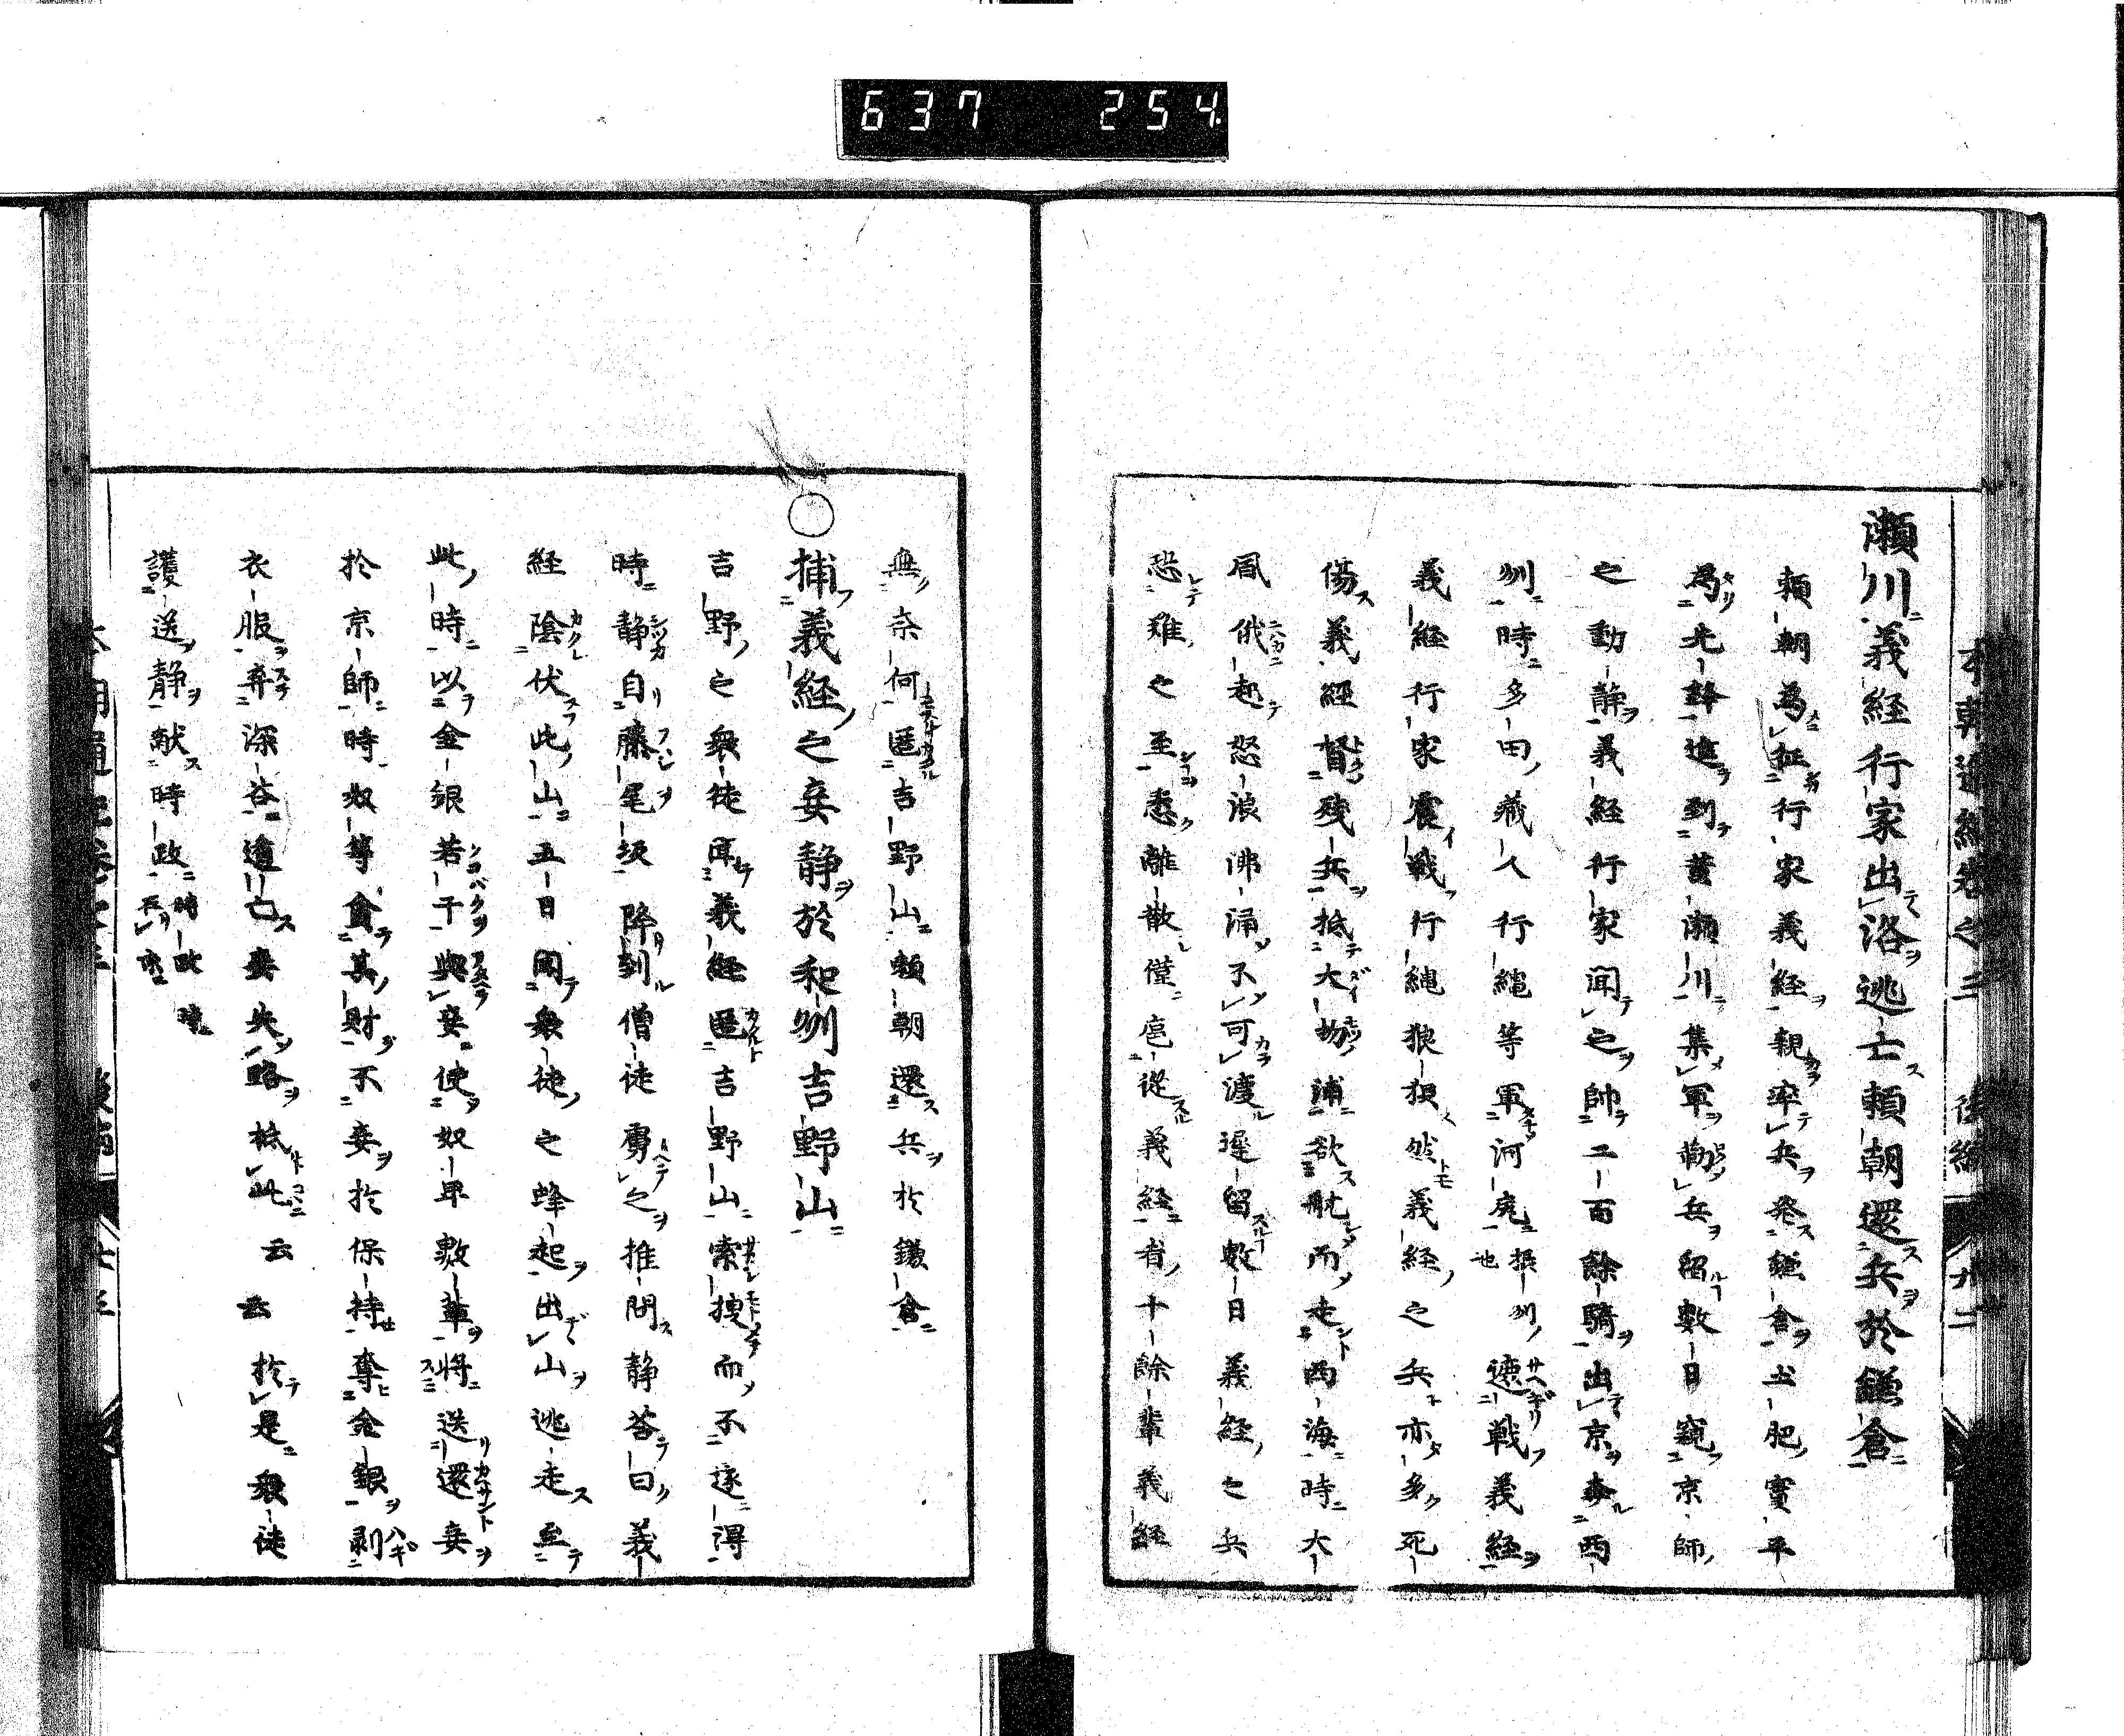 637 254
瀬川義経行家出洛逃亡頼朝還兵於鎌倉
頼朝為征行家義経親率兵発鎌倉土肥実平
為先鋒進到黄瀬川集軍勒兵留數日窺京師
之動静義経行家聞之帥二百餘騎出京奔西
州時多田蔵人行縄等軍河尻摂州也遮戦義経
義経行家震戦行縄狼狽然義経之兵亦多死
傷義経督残兵抵大物浦欲航而走西海時大
風俄起怒浪沸涌不可渡遅留數日義経之兵
恐難之至悉離散僅扈従義経者十餘輩義経
無奈何匿吉野山頼朝還兵於鎌倉
○捕義経之妾静於和州吉野山
吉野之衆徒聞義経匿吉野山索捜而不遂得
時静自藤尾坂降到僧徒虜之推問静答曰義
経陰伏此山五日聞衆徒之蜂起出山逃走至
此時以金銀若干與妾使奴卑數輩将送還妾
於京師時奴等貪其財不妾於保持奪金銀剥
衣服弃深谷逋亡妾失路抵此云云於是衆徒
護送静献時政時政時在京